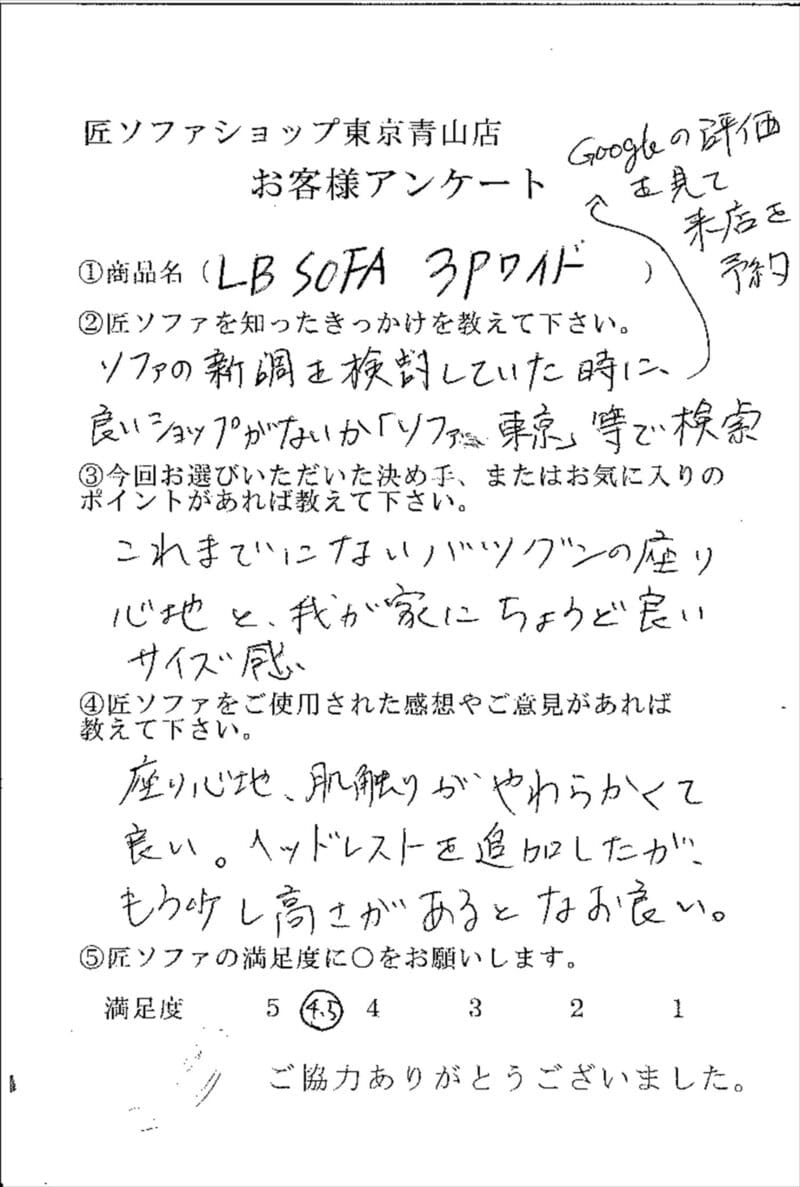 匠ソファショップ東京青山店
お客様アンケート
①商品名（LB SOFA 3Pワイド）
②匠ソファを知ったきっかけを教えて下さい。
ソファの新調を検討していた時に、
良いショップがないか「ソファ 東京」等で検索
Googleの評価
を見て
来店を
予約
③今回お選びいただいた決め手、またはお気に入りの
ポイントがあれば教えて下さい。
これまでにないバツグンの座り
心地と、我が家にちょうど良い
サイズ感
④匠ソファをご使用された感想やご意見があれば
教えて下さい。
座り心地、肌触りがやわらかくて
良い。ヘッドレストを追加したが、
もう少し高さがあるとなお良い。
⑤匠ソファの満足度に〇をお願いします。
満足度 5 4.5 4 3 2 1
ご協力ありがとうございました。